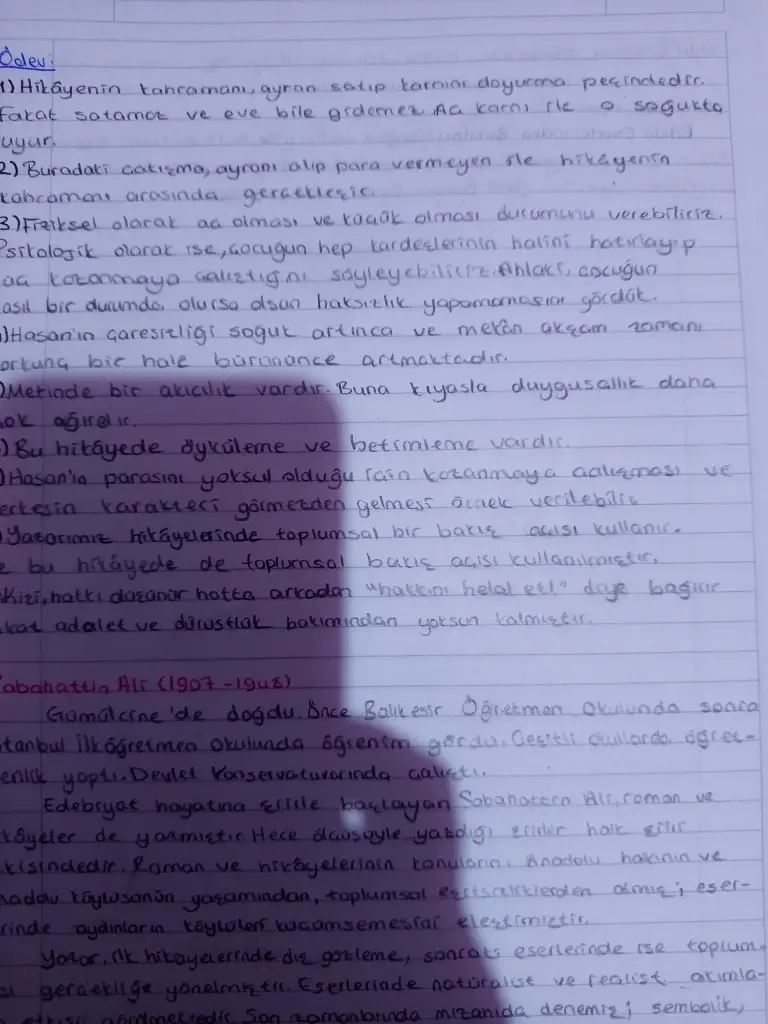 Ödev:
1) Hikâyenin kahramanı, ayran satıp karnını doyurma peşindedir.
Fakat satamaz ve eve bile gidemez. Aç karnı ile o soğukta
uyur.
2) Buradaki çatışma, ayranı alıp para vermeyen ile hikâyenin
kahramanı arasında gerçekleşir.
3) Fiziksel olarak aç olması ve küçük olması durumunu verebiliriz.
Psikolojik olarak ise, çocuğun hep kardeşlerinin halini hatırlayıp
aç kazanmaya çalıştığını söyleyebiliriz. Ahlaki, çocuğun
asıl bir durumda olursa olsun haksızlık yapamamasını gördük.
) Hasan'ın çaresizliği soğuk artınca ve mekân akşam zamanı
orkunç bir hale bürününce artmaktadır.
) Metinde bir akıcılık vardır. Buna kıyasla duygusallık daha
ok ağırdır.
) Bu hikâyede öyküleme ve betimleme vardır.
) Hasan'ın parasını yoksul olduğu için kazanmaya çalışması ve
erkesin karakteri görmezden gelmesi örnek verilebilir
) Yazarımız hikâyelerinde toplumsal bir bakış açısı kullanır.
e bu hikâyede de toplumsal bakış açısı kullanılmıştır.
Kişi, hakkı düşünür hatta arkadan "hakkını helal et!" diye bağırır
kat adalet ve dürüstlük bakımından yoksun kalmıştır.
Sabahattin Ali (1907-1948)
Gümülcine'de doğdu. Önce Balıkesir Öğretmen Okulunda sonra
stanbul İlköğretmen okulunda öğrenim gördü. Çeşitli okullarda öğret-
enlik yaptı. Devlet Konservatuvarında çalıştı.
Edebiyat hayatına şiirle başlayan Sabahattin Ali, roman ve
kâyeler de yazmıştır. Hece ölçüsüyle yazdığı şiirler halk şiiri
kisindedir. Roman ve hikâyelerinin konularını Anadolu halkının ve
köylüsünün yaşamından, toplumsal eşitsizliklerden almış; eser-
rinde aydınların köylüleri küçümsemesini eleştirmiştir.
Yazar, ilk hikayelerinde dış gözleme, sonraki eserlerinde ise toplum-
al gerçekliğe yönelmiştir. Eserlerinde natüralist ve realist akımla-
görülmektedir. Son zamanlarında mizahıda denemiş; sembolik,